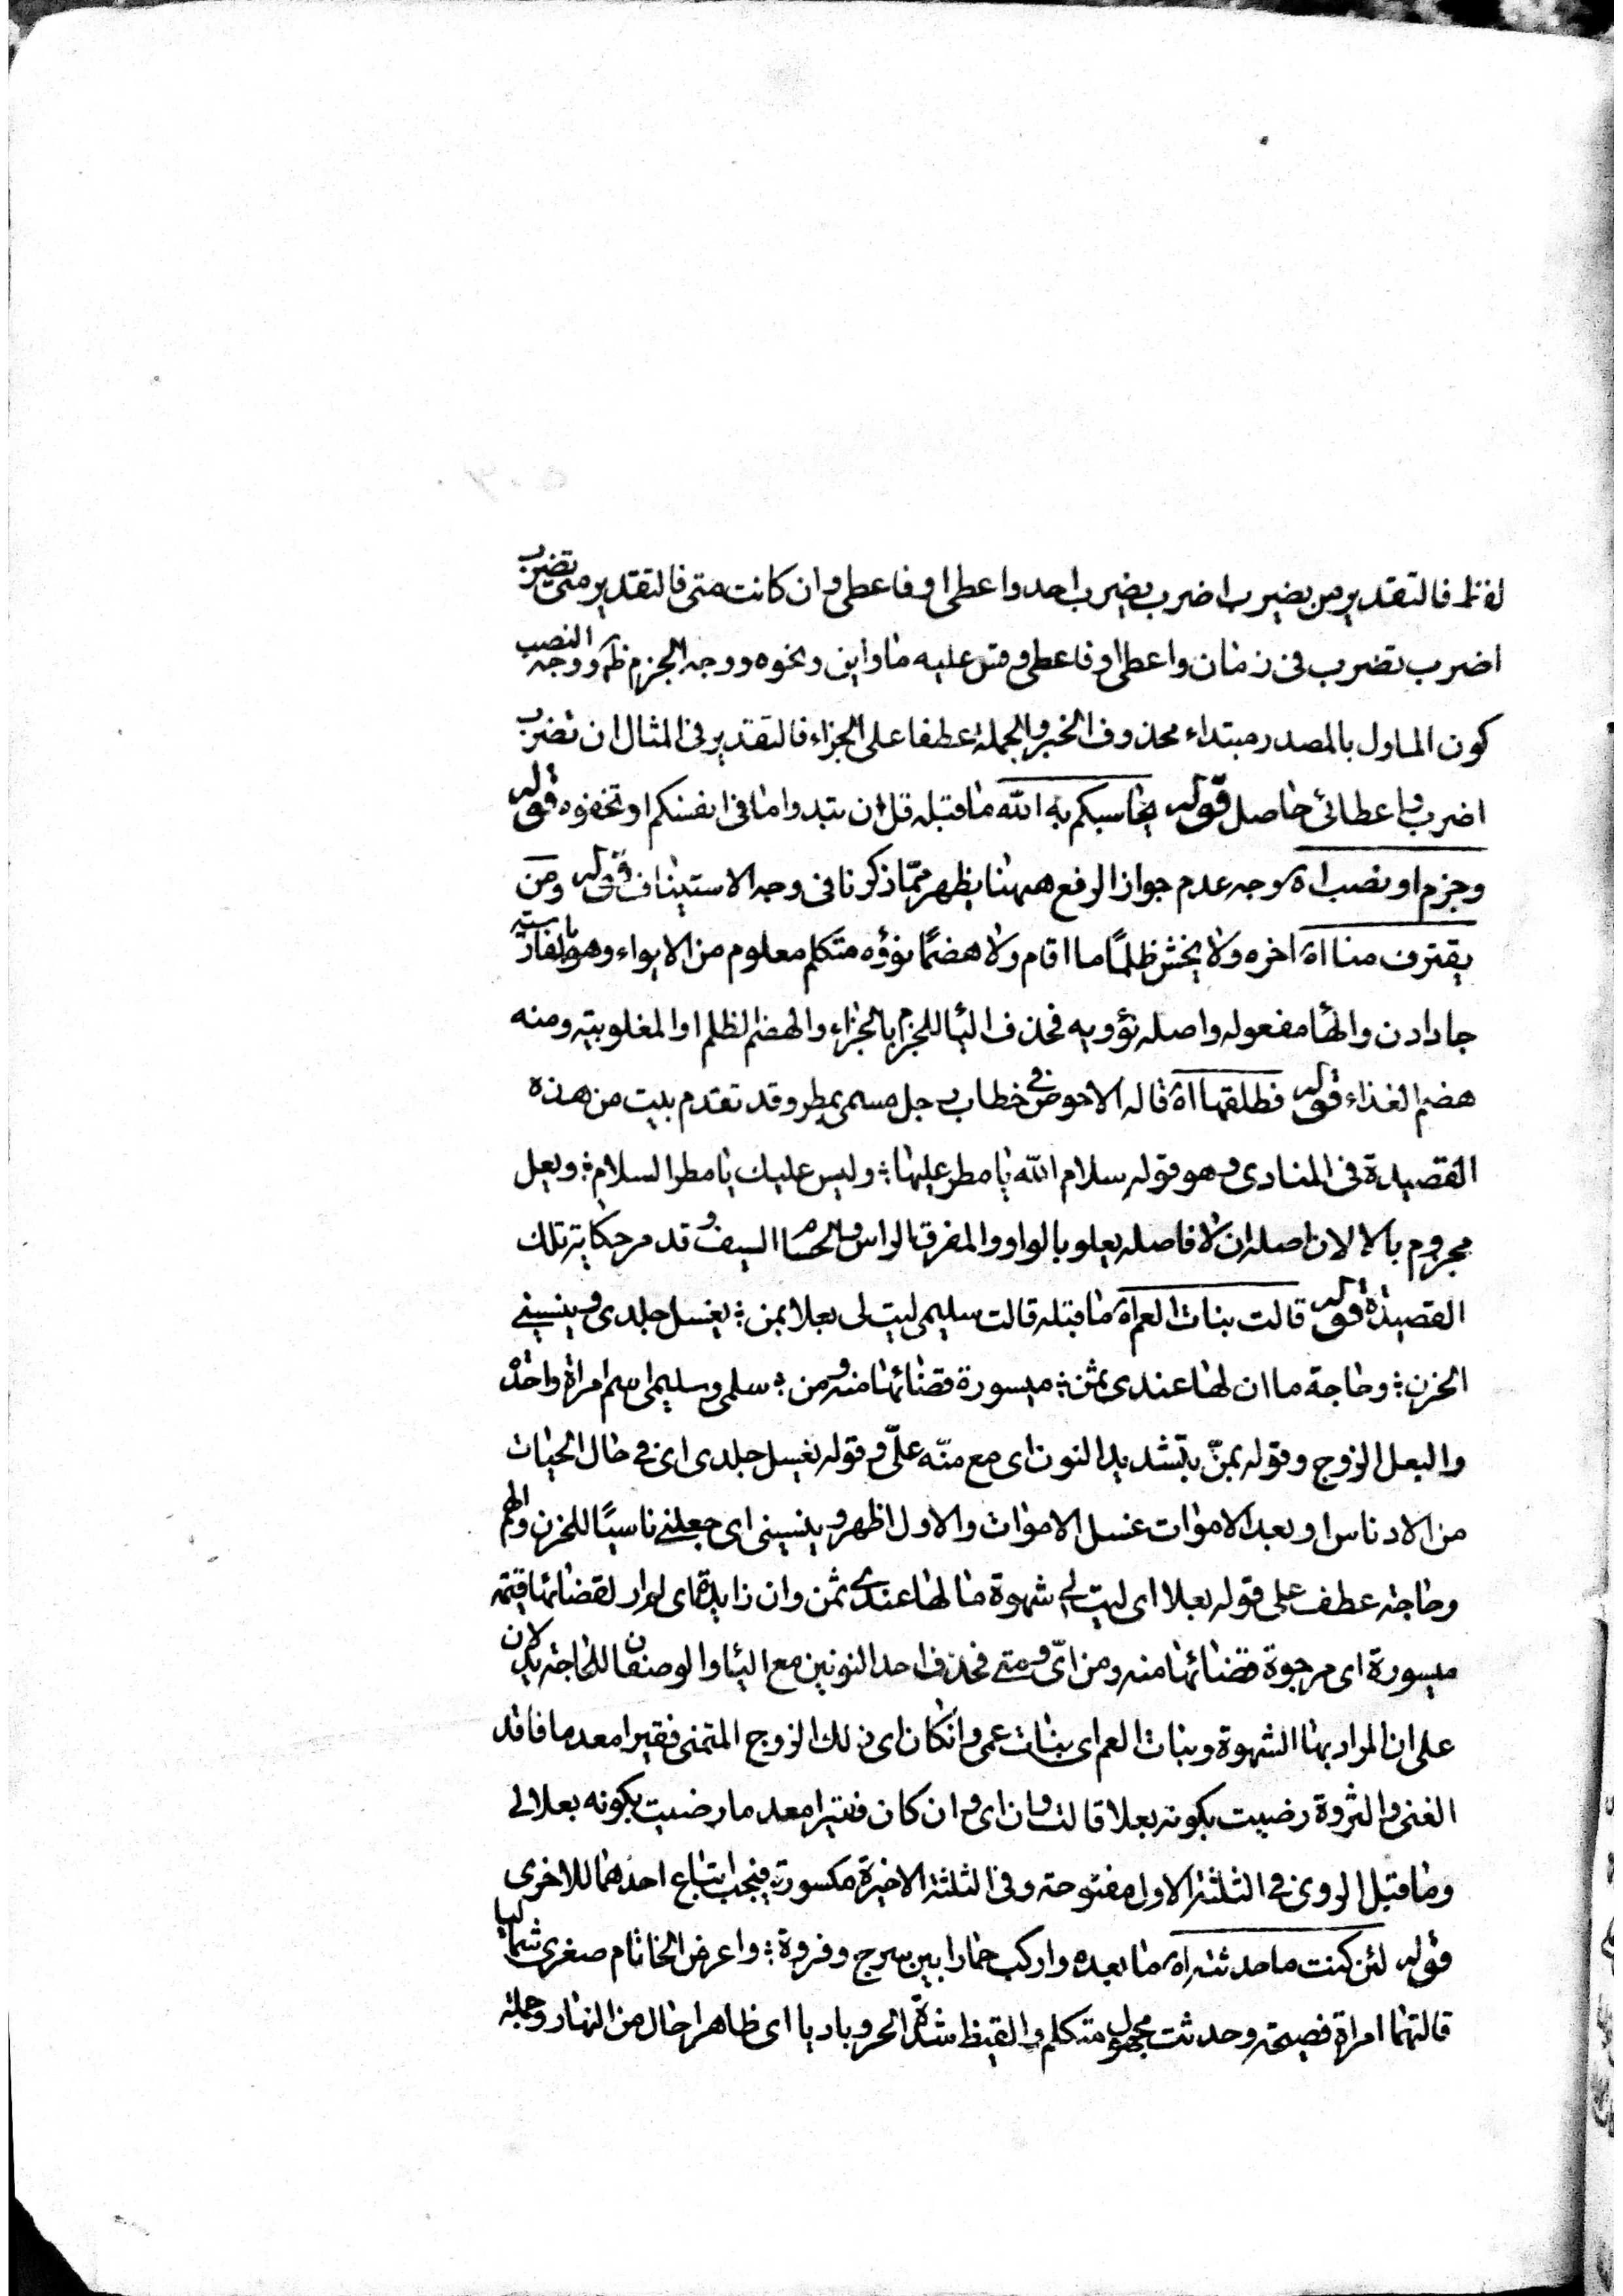 لفظ فالتقدير من يضرب اضرب يضرب احد واعطى او فاعطى وان كانت متى فالتقدير متى تضرب
اضرب تضرب فى زمان واعطى او فاعطى وقس عليه ما واين ونحوه ووجه الجزم ظ ووجه النصب
كون الماول بالمصدر مبتداء محذوف الخبر والجملة عطفا على الجزاء فالتقدير فى المثال ان تضرب
اضرب واعطائى حاصل قوله يحاسبكم به الله ما قبله قل ان تبدوا ما فى انفسكم او تخفوه قوله
وجزم او نصب اه وجه عدم جواز الرفع ههنا يظهر ممّا ذكرنا فى وجه الاستيناف قوله ومن
يقترف منا اه اخره ولا يخش ظلمًا ما اقام ولا هضمًا نؤوه متكلم معلوم من الايواء وهو بالفارسية
جا دادن والها مفعوله واصله نؤويه فحذف اليا للجزم بالجزاء والهضم الظلم او المغلوبية ومنه
هضم الغذاء قوله فطلقها اه قاله الاحوص فى خطاب رجل مسمى بمطر وقد تقدم بيت من هذه
القصيدة فى المنادى وهو قوله سلام الله يا مطر عليها ؛ وليس عليك يا مطر السلام ؛ ويعل
مجزوم بالا لان اصله ان لا فاصله يعلو بالواو والمفرق الراس والحسام السيف وقد مر حكاية تلك
القصيدة قوله قالت بنات العم اه ما قبله قالت سليمى ليت لى بعلا بمن ؛ يغسل جلدى وينسينى
الحزن ؛ وحاجة ما ان لها عندى ثمن ؛ ميسورة قضائها منه ومن ؛ سلمى وسليمى اسم امراة واحدة
والبعل الزوج وقوله بمنّ بتشديد النون اى مع منّه علىّ وقوله يغسل جلدى اى فى حال الحيات
من الادناس او بعد الاموات غسل الاموات والاول اظهر وينسينى اى جعلنى ناسيًا للحزن والهم
وحاجة عطف على قوله بعلا اى ليت لى شهوة ما لها عندى ثمن وان زايدة اى لم ار لقضائها قيمة
ميسورة اى مرجوة قضائها منه ومن اىّ ومنى فحذف احد النونين مع اليا والوصفان للحاجة يدلان
على ان المراد بها الشهوة وبنات العم اى بنات عمى وانكان اى ذلك الزوج المتمنى فقيرا معدما فاقد
الغنى والثروة رضيت بكونه بعلا قالت وان اى وان كان فقيرا معدما رضيت بكونه بعلا لى
وما قبل الروى فى الثلثة الاول مفتوحة وفى الثلثة الاخيرة مكسورة فيجب اتباع احدهما للاخرى
قوله لئن كنت ما حدثته اه ما بعده واركب حمارا بين سرج وفروة ؛ واعر من الخاتام صغرى شماليا
قالتها امراة فصيحة وحدثت مجهول متكلم والقيظ شدّة الحر وباديا اى ظاهرا حال من النهار وجملة